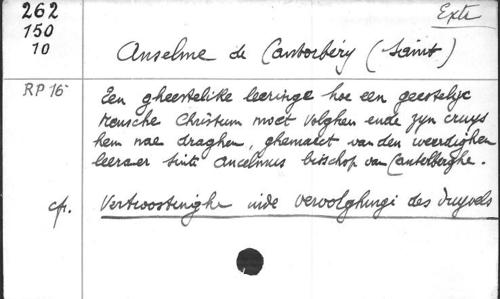 262
150
10
Exte
Anselme de Cantorbéry (Saint)
RP 16
Een gheestelike leeringe hoe een geestelijc
mensche Christum moet volghen ende zyn cruys
hem nae draghen, ghemaect van den weerdighen
leeraer sint Ancelmus bisschop van Cantelberghe.
cfr. Vertroostinghe inde vervolghingi des duyvels